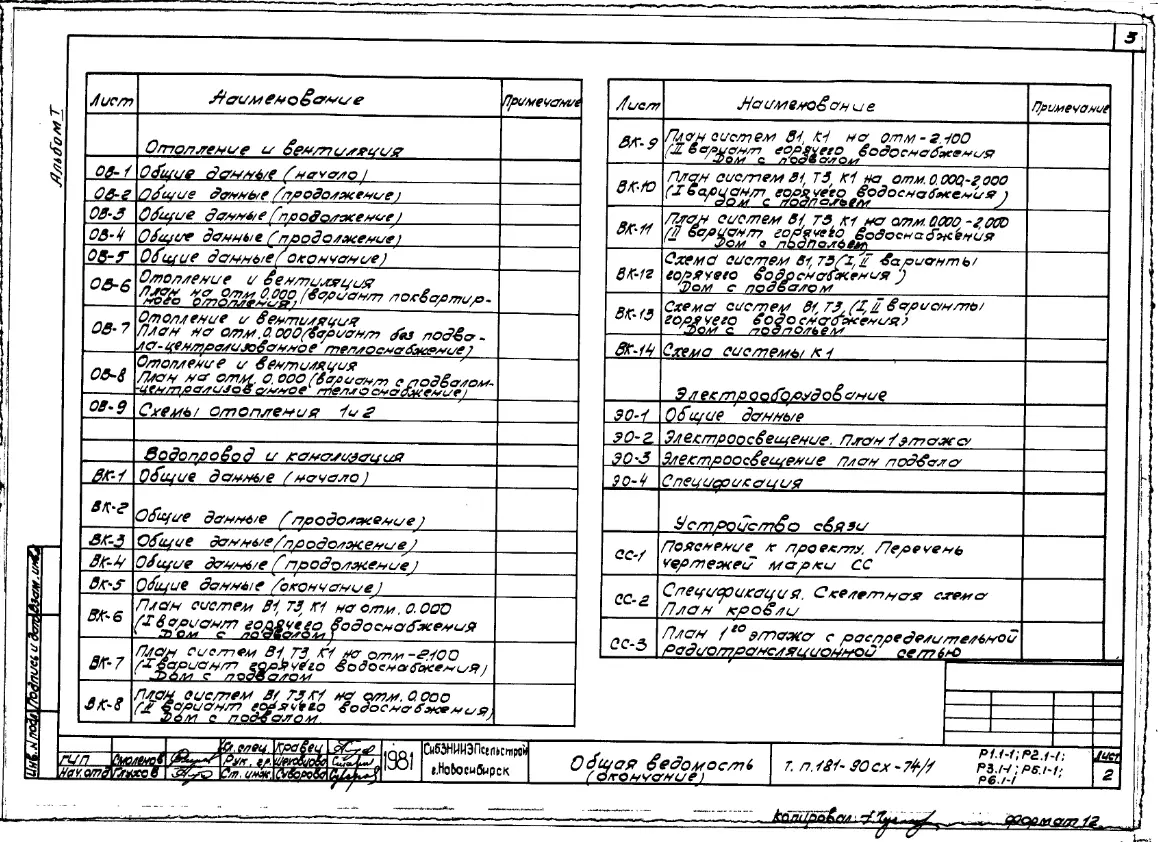 3
Альбом I
Лист Наименование Примечание
Отопление и вентиляция
ОВ-1 Общие данные (начало)
ОВ-2 Общие данные (продолжение)
ОВ-3 Общие данные (продолжение)
ОВ-4 Общие данные (продолжение)
ОВ-5 Общие данные (окончание)
ОВ-6 Отопление и вентиляция
План на отм. 0.000 (вариант поквартир-
ного отопления)
ОВ-7 Отопление и вентиляция
План на отм. 0.000 (вариант без подва-
ла-централизованное теплоснабжение)
ОВ-8 Отопление и вентиляция
План на отм. 0.000 (вариант с подвалом-
централизованное теплоснабжение)
ОВ-9 Схемы отопления 1 и 2
Водопровод и канализация
ВК-1 Общие данные (начало)
ВК-2 Общие данные (продолжение)
ВК-3 Общие данные (продолжение)
ВК-4 Общие данные (продолжение)
ВК-5 Общие данные (окончание)
ВК-6 План систем В1, Т3, К1 на отм. 0.000
(I вариант горячего водоснабжения
Дом с подвалом)
ВК-7 План систем В1, Т3, К1 на отм -2.100
(I вариант горячего водоснабжения)
Дом с подвалом
ВК-8 План систем В1 Т3 К1 на отм. 0.000
(II вариант горячего водоснабжения)
Дом с подвалом
Лист Наименование Примечание
ВК-9 План систем В1, К1 на отм -2.100
(II вариант горячего водоснабжения
Дом с подвалом
ВК-10 План систем В1, Т3, К1 на отм. 0.000, -2.000
(I вариант горячего водоснабжения)
дом с подпольем
ВК-11 План систем В1, Т3, К1 на отм. 0.000, -2.000
(II вариант горячего водоснабжения
Дом с подпольем)
ВК-12 Схема систем В1, Т3 (I, II варианты
горячего водоснабжения)
Дом с подвалом
ВК-13 Схема систем В1, Т3, (I, II варианты
горячего водоснабжения)
Дом с подпольем
ВК-14 Схема системы К1
Электрооборудование
ЭО-1 Общие данные
ЭО-2 Электроосвещение. План 1 этажа
ЭО-3 Электроосвещение план подвала
ЭО-4 Спецификация
Устройство связи
СС-1 Пояснение к проекту. Перечень
чертежей марки СС
СС-2 Спецификация. Скелетная схема
План кровли
СС-3 План 1го этажа с распределительной
радиотрансляционной сетью
Инв. N подл. Подпись и дата Взам. инв.
ГИП Смоленов
Нач. отд Глухов
Гл. спец. Кравец
Рук. гр.
Ст. инж. Суворова
1981
СибЗНИИЭПсельстрой
г. Новосибирск
Общая ведомость
(окончание)
Т. п. 181-90сх-74/1
Р1.1-1; Р2.1-1;
Р3.1-1; Р5.1-1;
Р6.1-1
Лист
2
Копировал: формат 12